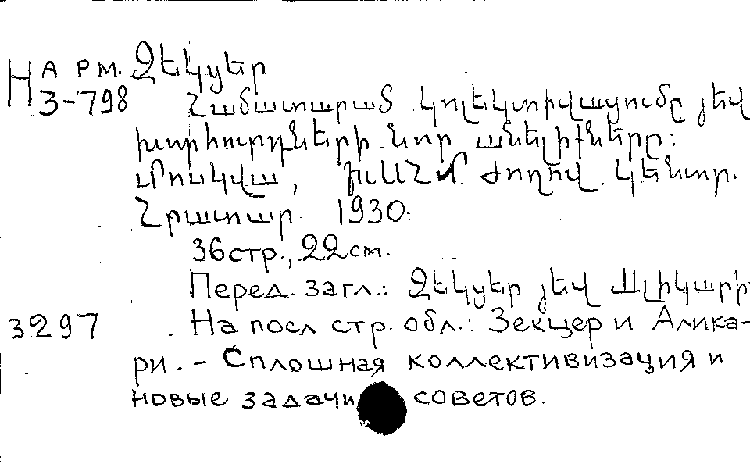 На рм. Զեկցեր
З-798 Համատարած կոլեկտիվացումը յեվ
խորհուրդների նոր անելիքները:
Մոսկվա, ԽՍՀՄ Ժողով. Կենտր.
Հրատար. 1930.
36стр., 22см.
Перед. загл.: Զեկցեր յեվ Ալիկարի
3297 На посл стр. обл.: Зекцер и Алика-
ри. - Сплошная коллективизация и
новые задачи советов.